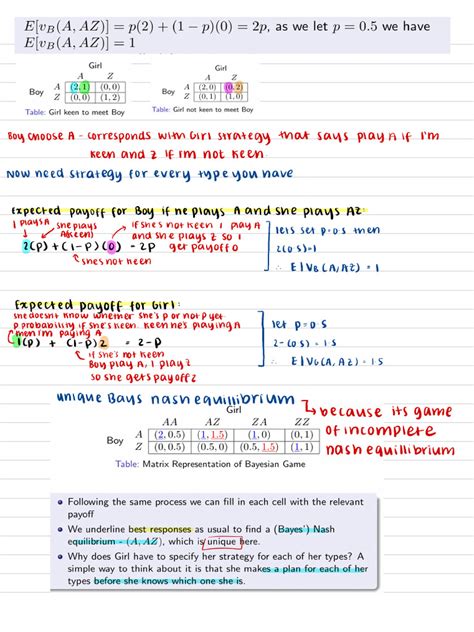 E[v_B(A, AZ)] = p(2) + (1 − p)(0) = 2p, as we let p = 0.5 we have
E[v_B(A, AZ)] = 1
Girl
A Z
Boy A (2, 1) (0, 0)
Z (0, 0) (1, 2)
Table: Girl keen to meet Boy
Girl
A Z
Boy A (2, 0) (0, 2)
Z (0, 1) (1, 0)
Table: Girl not keen to meet Boy
Boy choose A - corresponds with Girl strategy that says play A if I'm
keen and Z if I'm not keen
Now need strategy for every type you have
Expected payoff for Boy if he plays A and she plays AZ
I plays A
she plays
A (keen)
if she's not keen I play A
and she plays Z so I
get payoff 0
2(p) + (1-p)(0) = 2p
she's not keen
lets set p=0.5 then
2(0.5)=1
∴ E[V_B(A,AZ)] = 1
Expected payoff for Girl:
she doesnt know whether she's p or not p yet
p probability if she's keen. Keen he's playing A
I'm playing A
1(p) + (1-p)2 = 2-p
if she's not keen
Boy play A, I play Z
so she gets payoff 2
let p=0.5
2-(0.5) = 1.5
∴ E[V_G(A,AZ)] = 1.5
unique Bays nash equillibrium
because its game
of incomplete
nash equillibrium
Girl
AA AZ ZA ZZ
Boy A (2, 0.5) (1, 1.5) (1, 0) (0, 1)
Z (0, 0.5) (0.5, 0) (0.5, 1.5) (1, 1)
Table: Matrix Representation of Bayesian Game
• Following the same process we can fill in each cell with the relevant
payoff
• We underline best responses as usual to find a (Bayes') Nash
equilibrium - (A, AZ), which is unique here.
• Why does Girl have to specify her strategy for each of her types? A
simple way to think about it is that she makes a plan for each of her
types before she knows which one she is.